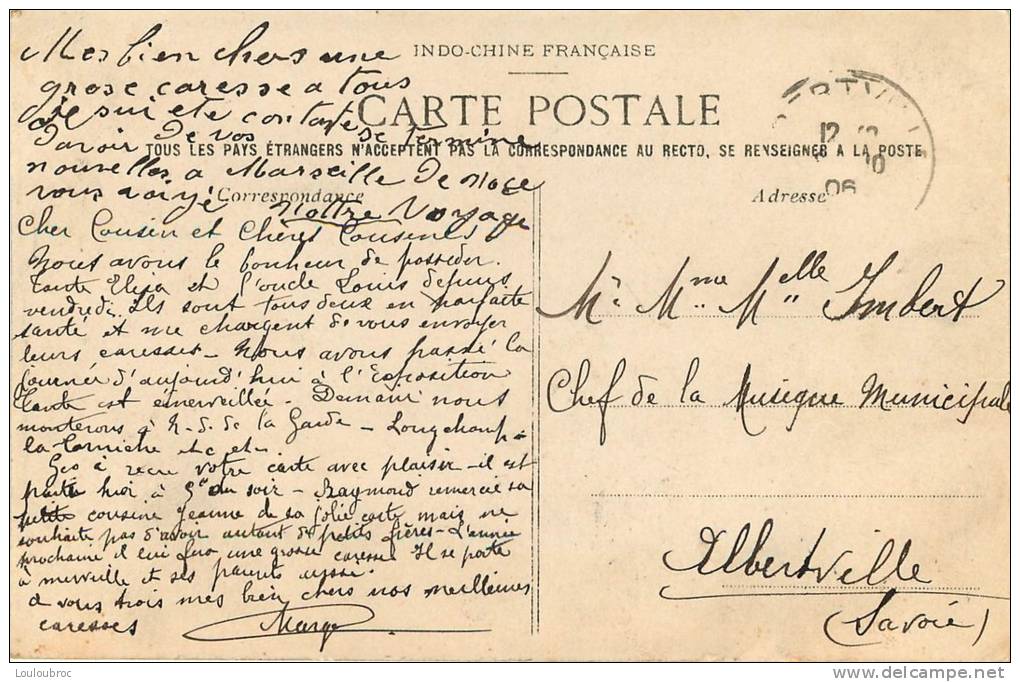 Mes bien chers une
grose caresse a tous
je sui ete contante
d'avoir de vos
nouvelles a Marseille de noce
vous voiyé
se termine
nottre voyage
INDO-CHINE FRANÇAISE
CARTE POSTALE
TOUS LES PAYS ÉTRANGERS N'ACCEPTENT PAS LA CORRESPONDANCE AU RECTO, SE RENSEIGNER A LA POSTE
Correspondance
Adresse
12
10
06
Cher Cousin et Chères Cousines
Nous avons le bonheur de posséder
tante Elisa et l'oncle Louis depuis
vendredi. Ils sont tous deux en parfaite
santé et me chargent de vous envoyer
leurs caresses - Nous avons passé la
journée d'aujourd'hui à l'Exposition
tante est émerveillée - Demain nous
monterons à N.-D. de la Garde - Longchamp -
la Corniche etc etc
Geo à reçu votre carte avec plaisir - il est
parti hier à du soir - Raymond remercie sa
petite cousine Jeanne de sa jolie carte mais ne
souhaite pas d'avoir autant de petits frères - L'année
prochaine il lui fera une grosse caresse Il se porte
à merveille et ses parents aussi.
a vous trois mes bien chers nos meilleures
caresses
Mr. Mme. Melle Imbert
Chef de la Musique Municipale
Albertville
(Savoie)
Louloubroc
www.delcampe.net